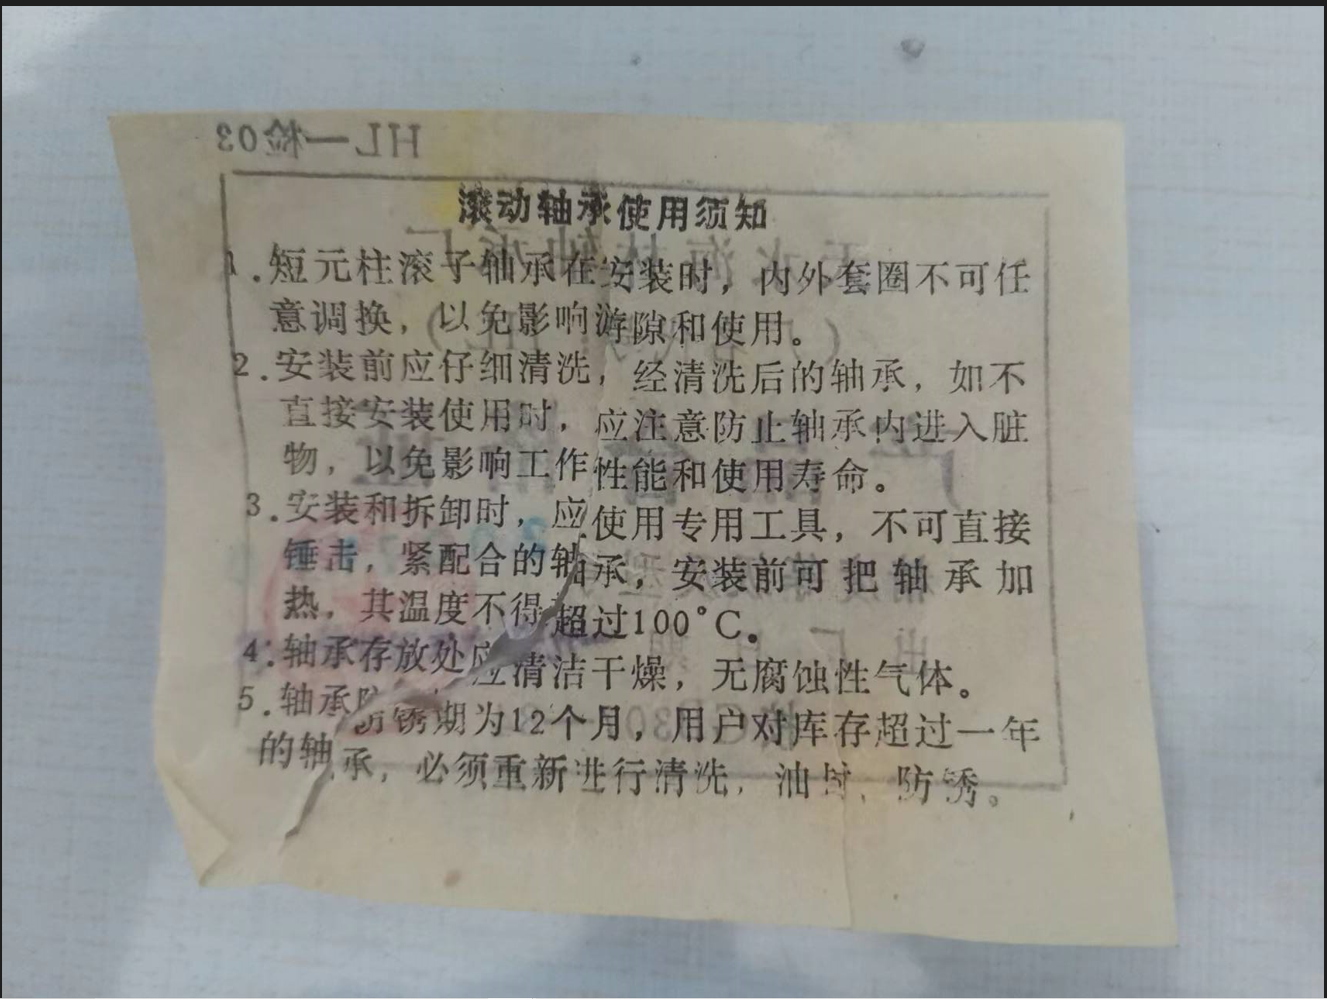 HL—检03
滚动轴承使用须知
1.短元柱滚子轴承在安装时，内外套圈不可任
意调换，以免影响游隙和使用。
2.安装前应仔细清洗，经清洗后的轴承，如不
直接安装使用时，应注意防止轴承内进入脏
物，以免影响工作性能和使用寿命。
3.安装和拆卸时，应使用专用工具，不可直接
锤击，紧配合的轴承，安装前可把轴承加
热，其温度不得超过100°C。
4.轴承存放处应清洁干燥，无腐蚀性气体。
5.轴承防锈期为12个月，用户对库存超过一年
的轴承，必须重新进行清洗，油封，防锈。